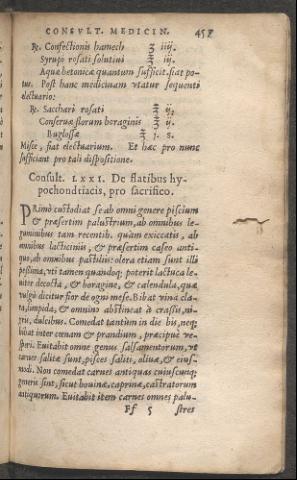 CONSVLT. MEDICIN. 457
℞. Confectionis hamech ʒ iiij.
Syrupi rosati solutiui ℥ iij.
Aquæ betonicæ quantum sufficit. fiat po-
tus. Post hanc medicinam vtatur sequenti
electuario:
℞. Sacchari rosati ℥ ij.
Conseruæ florum boraginis ℥ ij.
Buglossæ ℥ i. s.
Misce, fiat electuarium. Et hæc pro nunc
sufficiant pro tali dispositione.
Consult. LXXI. De flatibus hy-
pochondriacis, pro sacrifico.
PRimò custodiat se ab omni genere piscium
& præsertim palustrium, ab omnibus le-
guminibus tam recentib. quàm exiccatis, ab
omnibus lacticiniis, & præsertim caseo anti-
quo, ab omnibus pastilliis: olera etiam sunt illi
pessima, vti tamen quandoq; poterit lactuca le-
uiter decocta, & boragine, & calendula, quæ
vulgò dicitur fior de ogni mese. Bibat vina cla-
ra, limpida, & omnino abstineat à crassis, ni-
gris, dulcibus. Comedat tantùm in die bis, neq;
bibat inter cœnam & prandium, præcipuè ve-
speri. Euitabit omne genus salsamentorum, vt
carnes salitæ sunt, pisces saliti, oliuæ, & eius-
modi. Non comedat carnes antiquas cuiuscunq;
generis sint, sicut bouinæ, caprinæ, castratorum
antiquorum. Euitabit item carnes omnes palu-
Ff 5 stres